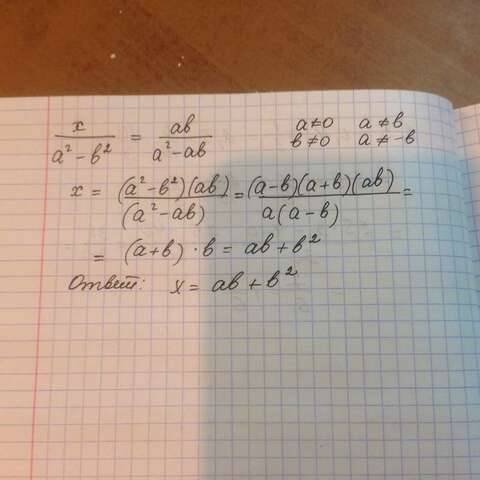 x/(a² - b²) = ab/(a² - ab)   a ≠ 0   a ≠ b
b ≠ 0   a ≠ -b
x = (a² - b²)(ab)/(a² - ab) = (a - b)(a + b)(ab)/a(a - b) =
= (a + b) · b = ab + b²
Ответ: x = ab + b²